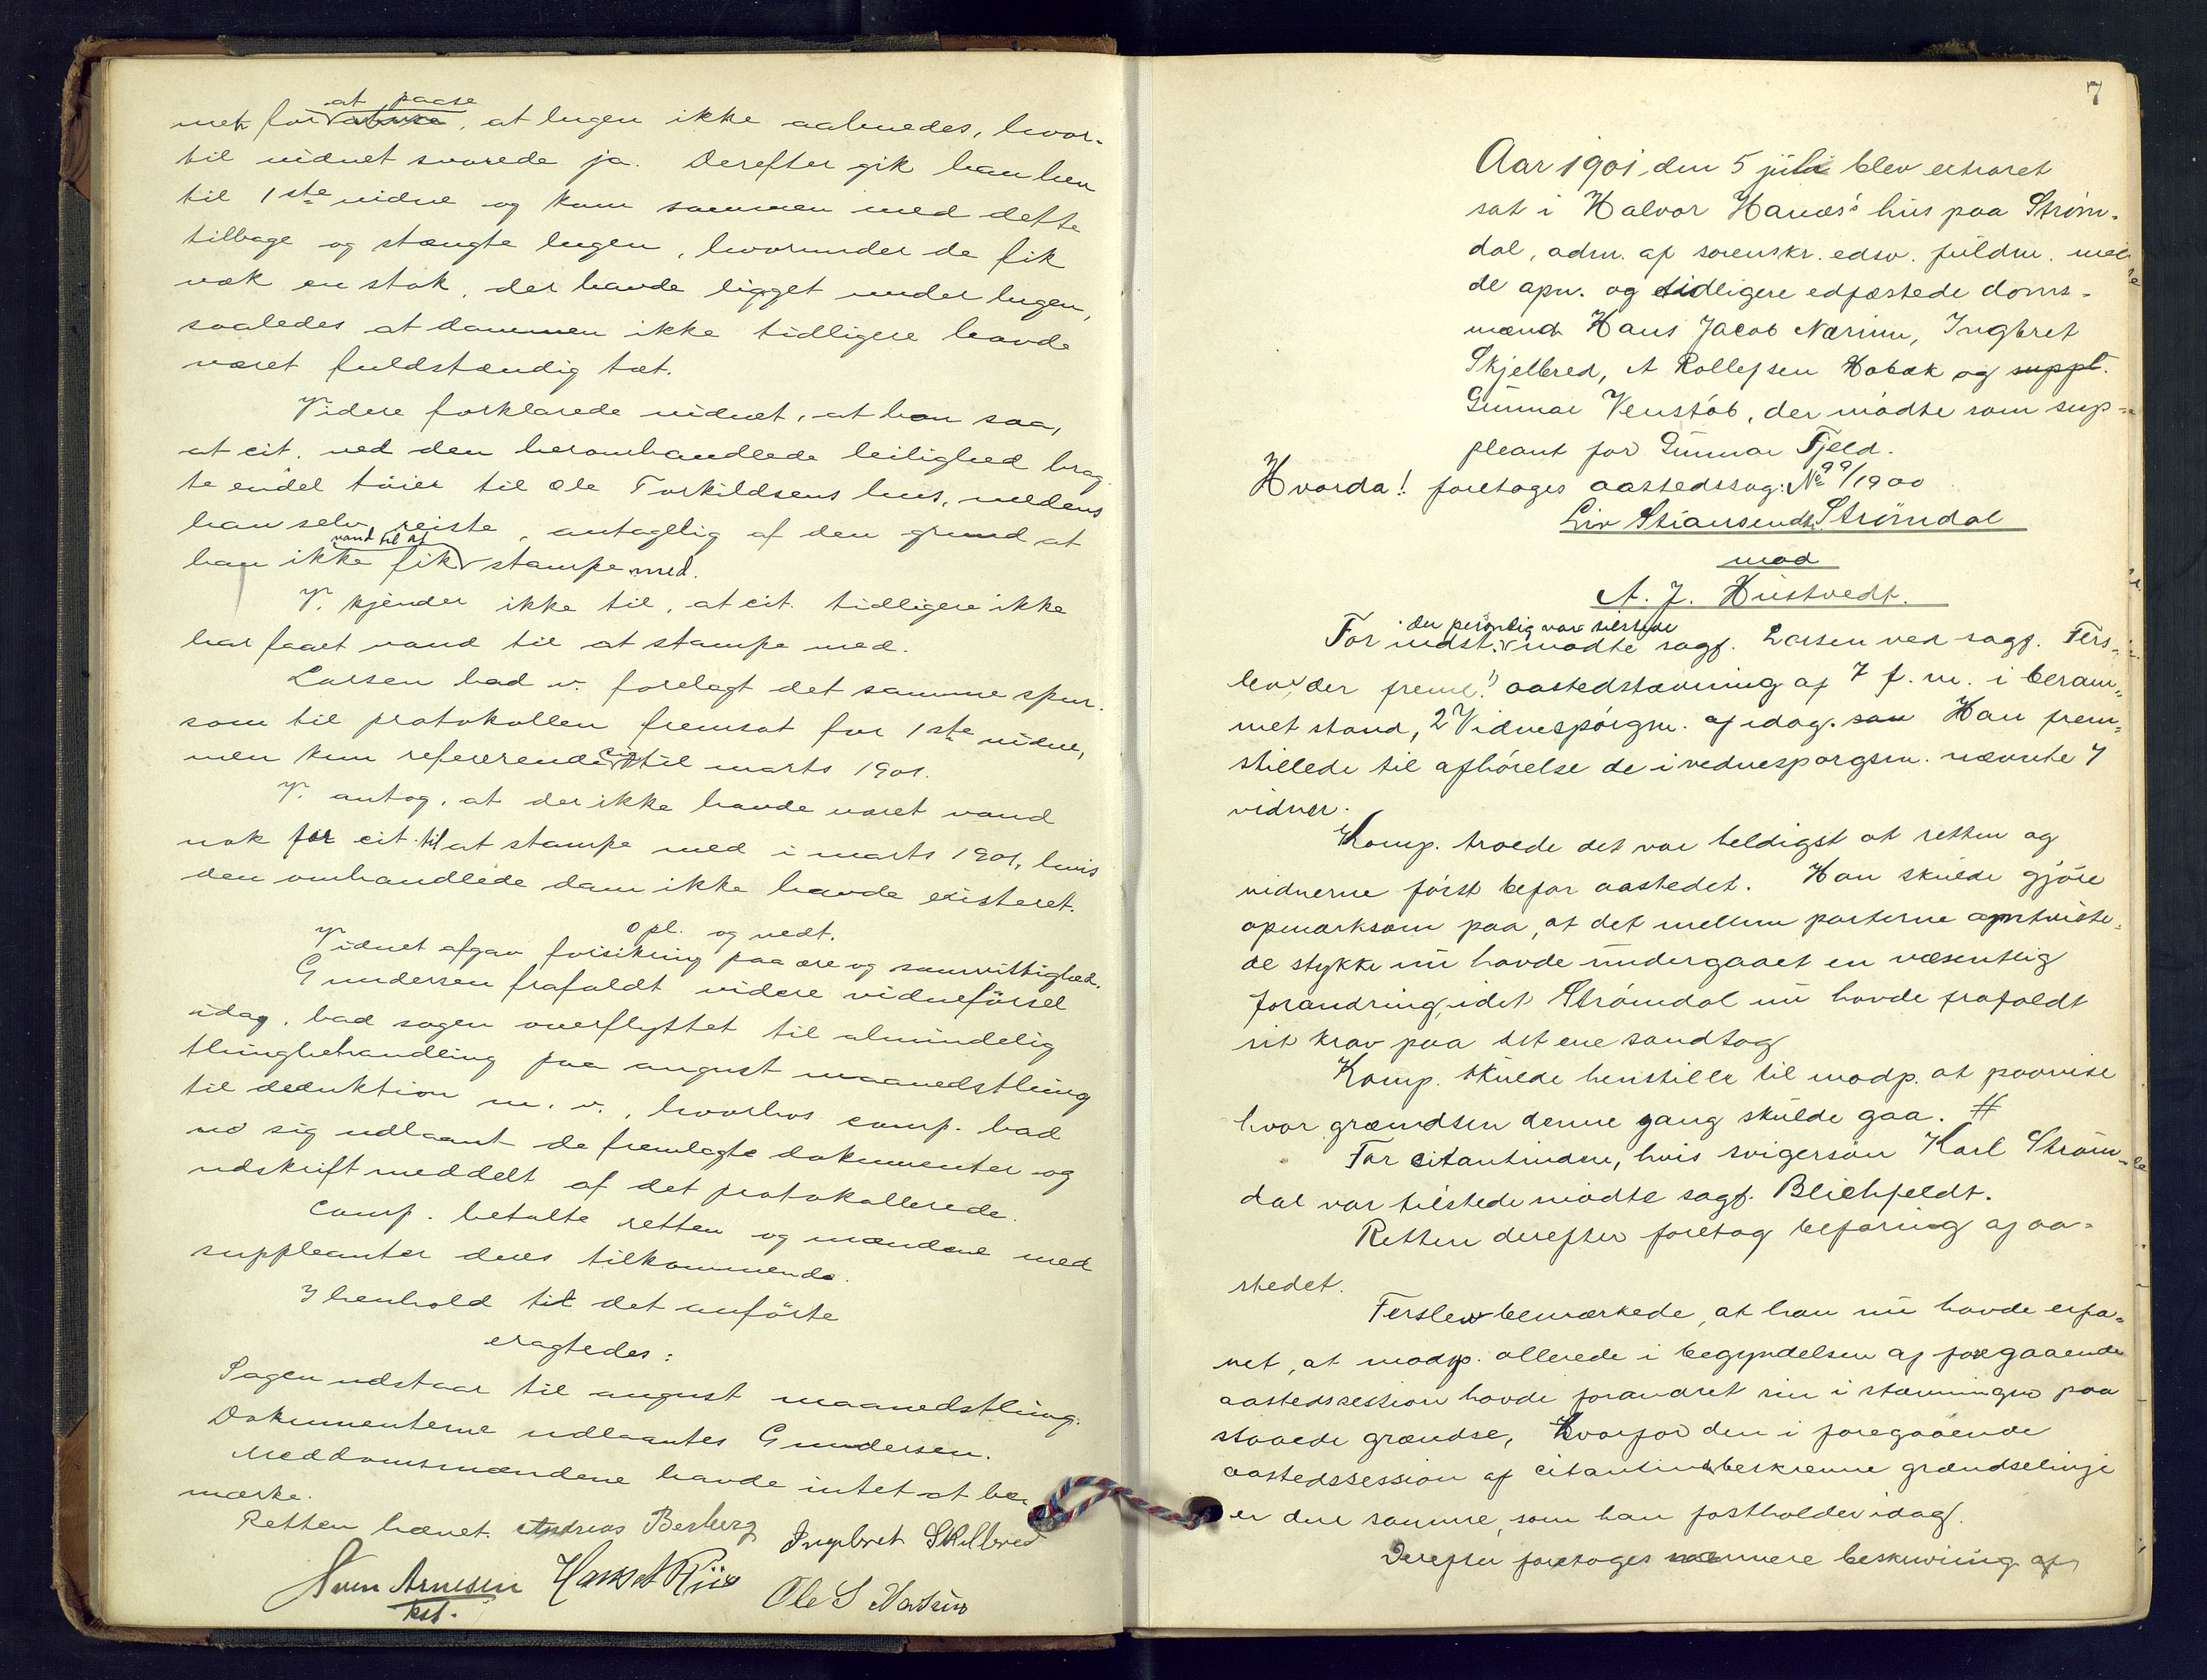 at paase
met for , at lugen ikke aabnedes, hvor-
til vidnet svarede ja. Derefter gik han hen
til 1ste vidne og kom sammen med dette
tilbage og stængte lugen, hvorunder de fik
væk en stok, der havde ligget under lugen,
saaledes at dammen ikke tidligere havde
været fuldstændig tæt.
Videre forklarede vidnet, at han saa,
at cit. ved den heromhandlede leilighed brag-
te endel töier til Ole Torkildsens hus, medens
han selv reiste, antagelig af den grund at
vand til at
han ikke fik stampe med.
V. kjender ikke til, at cit. tidligere ikke
har faaet vand til at stampe med.
Larsen bad v. forelagt det samme spm.
som til protokollen fremsat for 1ste vidne,
men kun refererende sig til marts 1901.
V. antog, at der ikke havde været vand
nok for cit. til at stampe med i marts 1901, hvis
den omhandlede dam ikke havde existeret.
Opl. og vedt.
Vidnet afgav forsikring paa ære og samvittighed.
Gundersen frafaldt videre vidneförsel
idag, bad sagen overflyttet til almindelig
thingbehandling paa august maanedsthing
til deduktion m. v., hvorhos comp. bad
sig udlaant de fremlagte dokumenter og
udskrift meddelt af det protokollerede.
Comp. betalte retten og mændene med
suppleanter deres tilkommende.
I henhold til det anförte
eragtedes:
Sagen udstaar til august maanedsthing.
Dokumenterne udlaantes Gundersen.
Meddomsmændene havde intet at be-
mærke.
Retten hævet. Andreas Berberg Ingebret Skilbred
Sven Arnesen Hans A Riis Ole S
kst.
7
Aar 1901 den 5 juli blev extraret
sat i Halvor Hanæs's hus paa Ström-
dal, adm. af sorenskr. edsv. fuldm. med
de opn. og tidligere edfæstede doms-
mænd Hans Jacob Nærum, Ingbret
Skjelbred, A Rollefsen Hobæk og suppl.
Gunnar Venstöb, der mödte som sup-
pleant for Gunnar Fjeld.
Hvorda! foretoges aastedssag: No 99/1900
Liv Stiansendt. Strömdal
mod
A. J. Hustvedt.
der personlig var tilstede
For indst. mödte sagf. Larsen ved sagf. Fers-
lev, der freml. aastedstævning af 7 f. m. i beram-
met stand, 2 Vidnespörgsm. af idag. Han frem-
stillede til afhörelse de i vidnespörgsm. nævnte 7
vidner.
Komp. troede det var heldigst at retten og
vidnerne först befor aastedet. Han skulde gjöre
opmærksom paa, at det mellem parterne omtviste-
de stykke nu havde undergaaet en væsentlig
forandring, idet Strömdal nu havde frafaldt
sit krav paa det ene sandtag
Komp. skulde henstille til modp. at paavise
hvor grændsen denne gang skulde gaa. #
For citantinden, hvis svigersön Karl Ström-
dal var tilstede mödte sagf. Blichfeldt.
Retten derefter foretog befaring af aa-
stedet.
Ferslew bemærkede, at han nu havde erfa-
ret, at modp. allerede i begyndelsen af foregaaende
aastedssession havde forandret sin i stævningen paa
staaede grændse, hvorfor den i foregaaende
aastedssession af citantinden beskrevne grændselinje
er den samme, som han fastholder idag.
Derefter foretoges nærmere beskrivning af